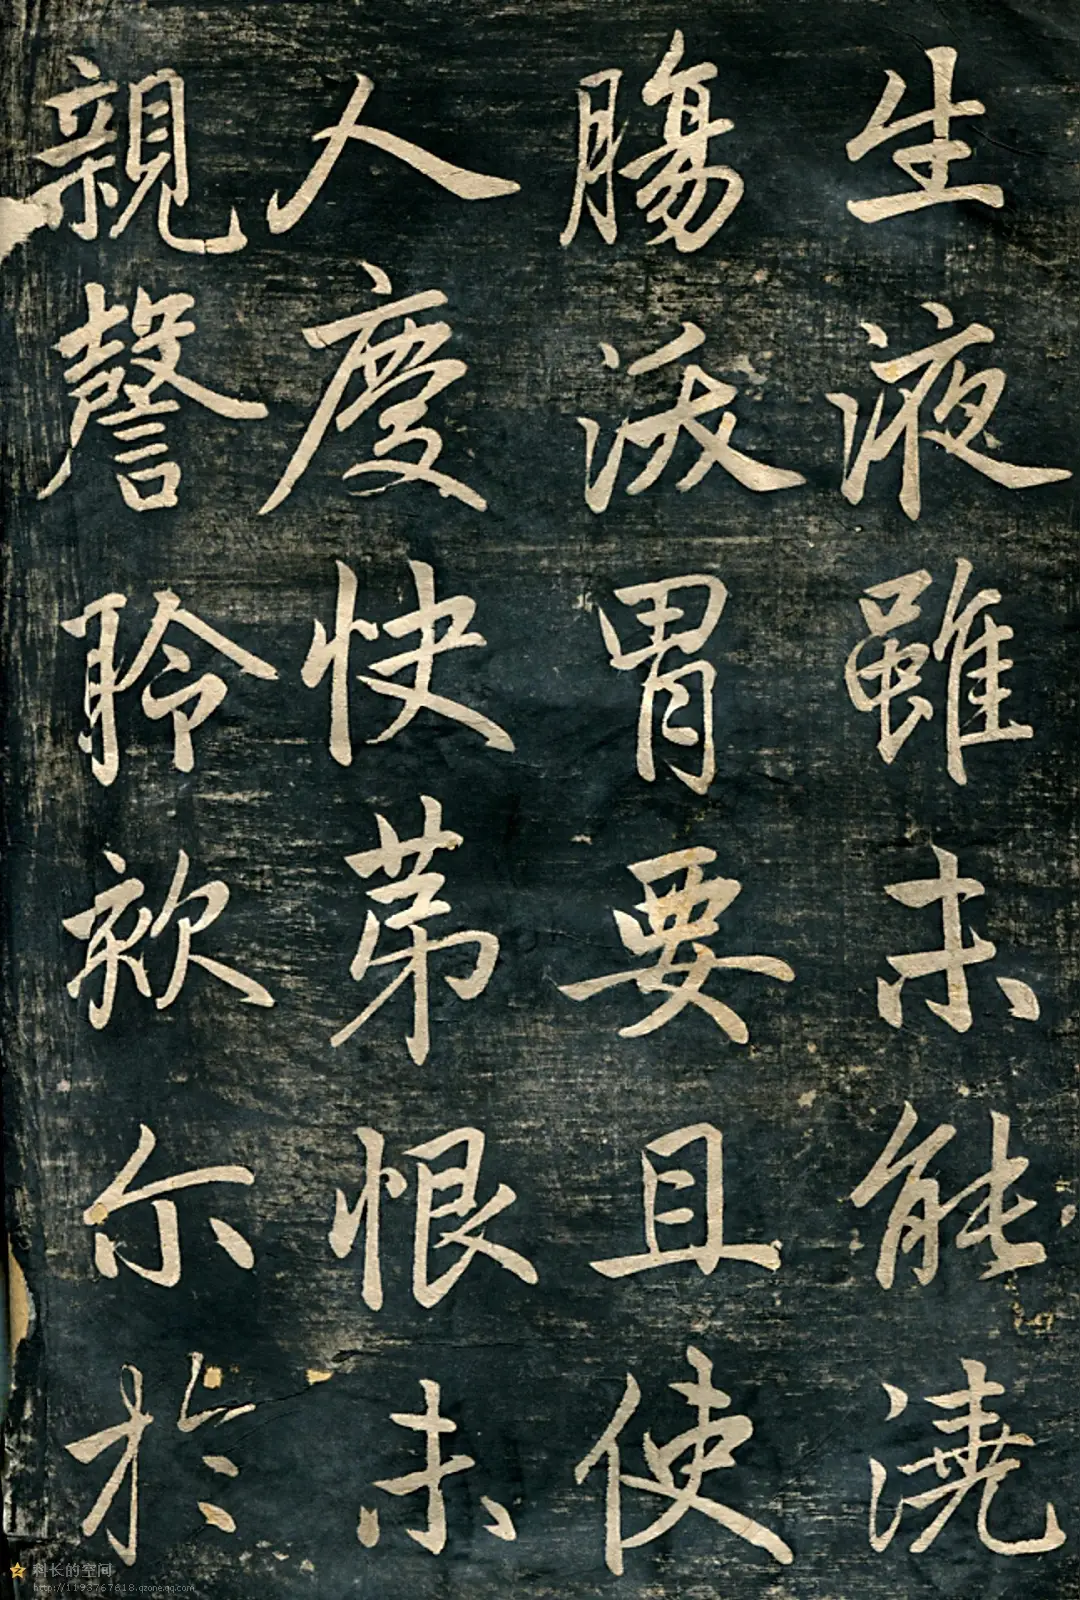 生液雖未能澆
腸沃胃要且使
人慶快苐恨未
親謦聆欬尒於
科长的空间
http://1193767618.qzone.qq.com